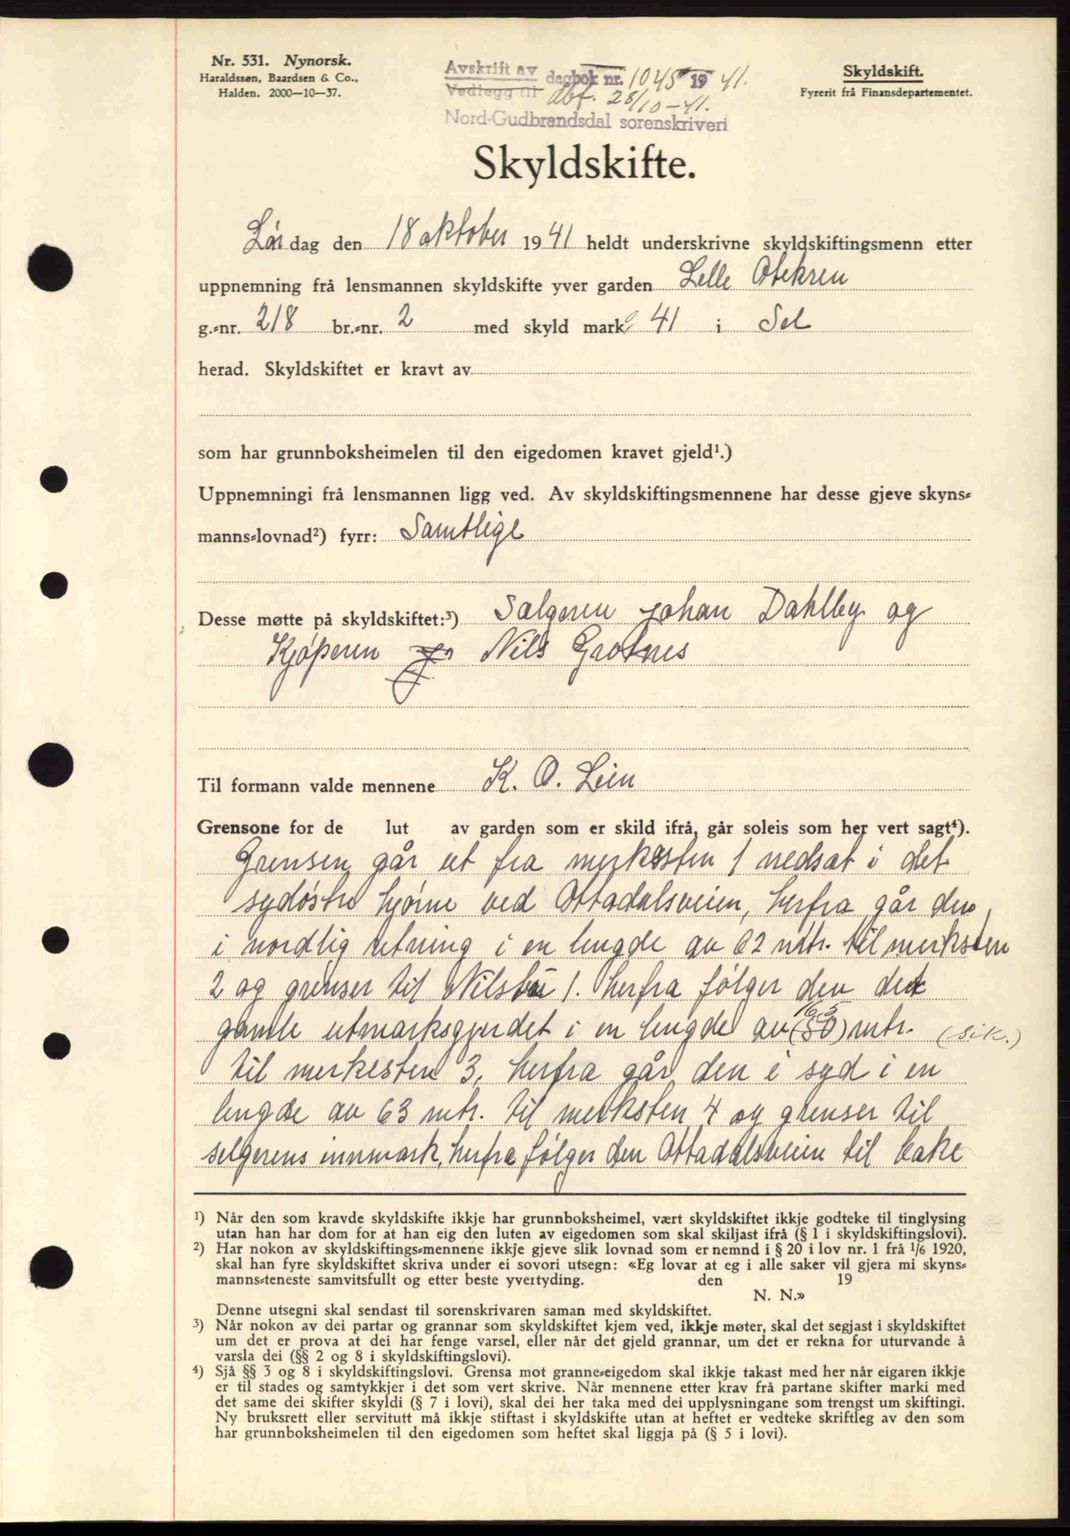 Nr. 531. Nynorsk.
Haraldssøn, Baardsen & Co.,
Halden. 2000-10-37.
Avskrift av dagbok nr. 1045 1941.
Vedlegg til dbf. 28/10-41.
Nord-Gudbrandsdal sorenskriveri
Skyldskift.
Fyrerit frå Finansdepartementet.
Skyldskifte.
Lør dag den 18 oktober 1941 heldt underskrivne skyldskiftingsmenn etter
uppnemning frå lensmannen skyldskifte yver garden Lelle
g.-nr. 218 br.-nr. 2 med skyld mark 0 41 i Sel
herad. Skyldskiftet er kravt av
som har grunnboksheimelen til den eigedomen kravet gjeld¹.)
Uppnemningi frå lensmannen ligg ved. Av skyldskiftingsmennene har desse gjeve skyns-
manns-lovnad²) fyrr: Samtlige
Desse møtte på skyldskiftet:³) Selgeren Johan Dahlby og
Kjøperen Nils Grotnes
Til formann valde mennene K. O. Lein
Grensone for de lut av garden som er skild ifrå, går soleis som her vert sagt⁴).
Grensen går ut fra merkesten 1 nedsat i det
sydøstre hjørne ved Ottadalsveien, herfra går den
i nordlig retning i en lengde av 62 mtr. til merksten
2 og grenser til Nilsbu 1. herfra følger den det
gamle utmarksgjerdet i en lengde av 16,5 (50) mtr. (sik.)
til merkesten 3, herfra går den i syd i en
lengde av 63 mtr. til merksten 4 og grenser til
selgerens innmark, herfra følger den Ottadalsveien til bake
¹) Når den som kravde skyldskifte ikkje har grunnboksheimel, vært skyldskiftet ikkje godteke til tinglysing
utan han har dom for at han eig den luten av eigedomen som skal skiljast ifrå (§ 1 i skyldskiftingslovi).
²) Har nokon av skyldskiftings-mennene ikkje gjeve slik lovnad som er nemnd i § 20 i lov nr. 1 frå 1/6 1920,
skal han fyre skyldskiftet skriva under ei sovori utsegn: «Eg lovar at eg i alle saker vil gjera mi skyns-
manns-teneste samvitsfullt og etter beste yvertyding. den 19
N. N.»
Denne utsegni skal sendast til sorenskrivaren saman med skyldskiftet.
³) Når nokon av dei partar og grannar som skyldskiftet kjem ved, ikkje møter, skal det segjast i skyldskiftet
um det er prova at dei har fenge varsel, eller når det gjeld grannar, um det er rekna for uturvande å
varsla dei (§§ 2 og 8 i skyldskiftingslovi).
⁴) Sjå §§ 3 og 8 i skyldskiftingslovi. Grensa mot granne-eigedom skal ikkje takast med her når eigaren ikkje
er til stades og samtykkjer i det som vert skrive. Når mennene etter krav frå partane skifter marki med
det same dei skifter skyldi (§ 7 i lovi), skal dei her taka med dei upplysningane som trengst um skiftingi.
Ny bruksrett eller servitutt må ikkje stiftast i skyldskifte utan at heftet er vedteke skriftleg av den som
har grunnboksheimelen til den eigedomen som heftet skal liggja på (§ 5 i lovi).